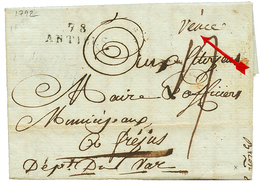 1792
78
ANTI
Vence
Aux Citoyens
Maire & officiers
Municipaux
à fréjus
Dépt. Du Var